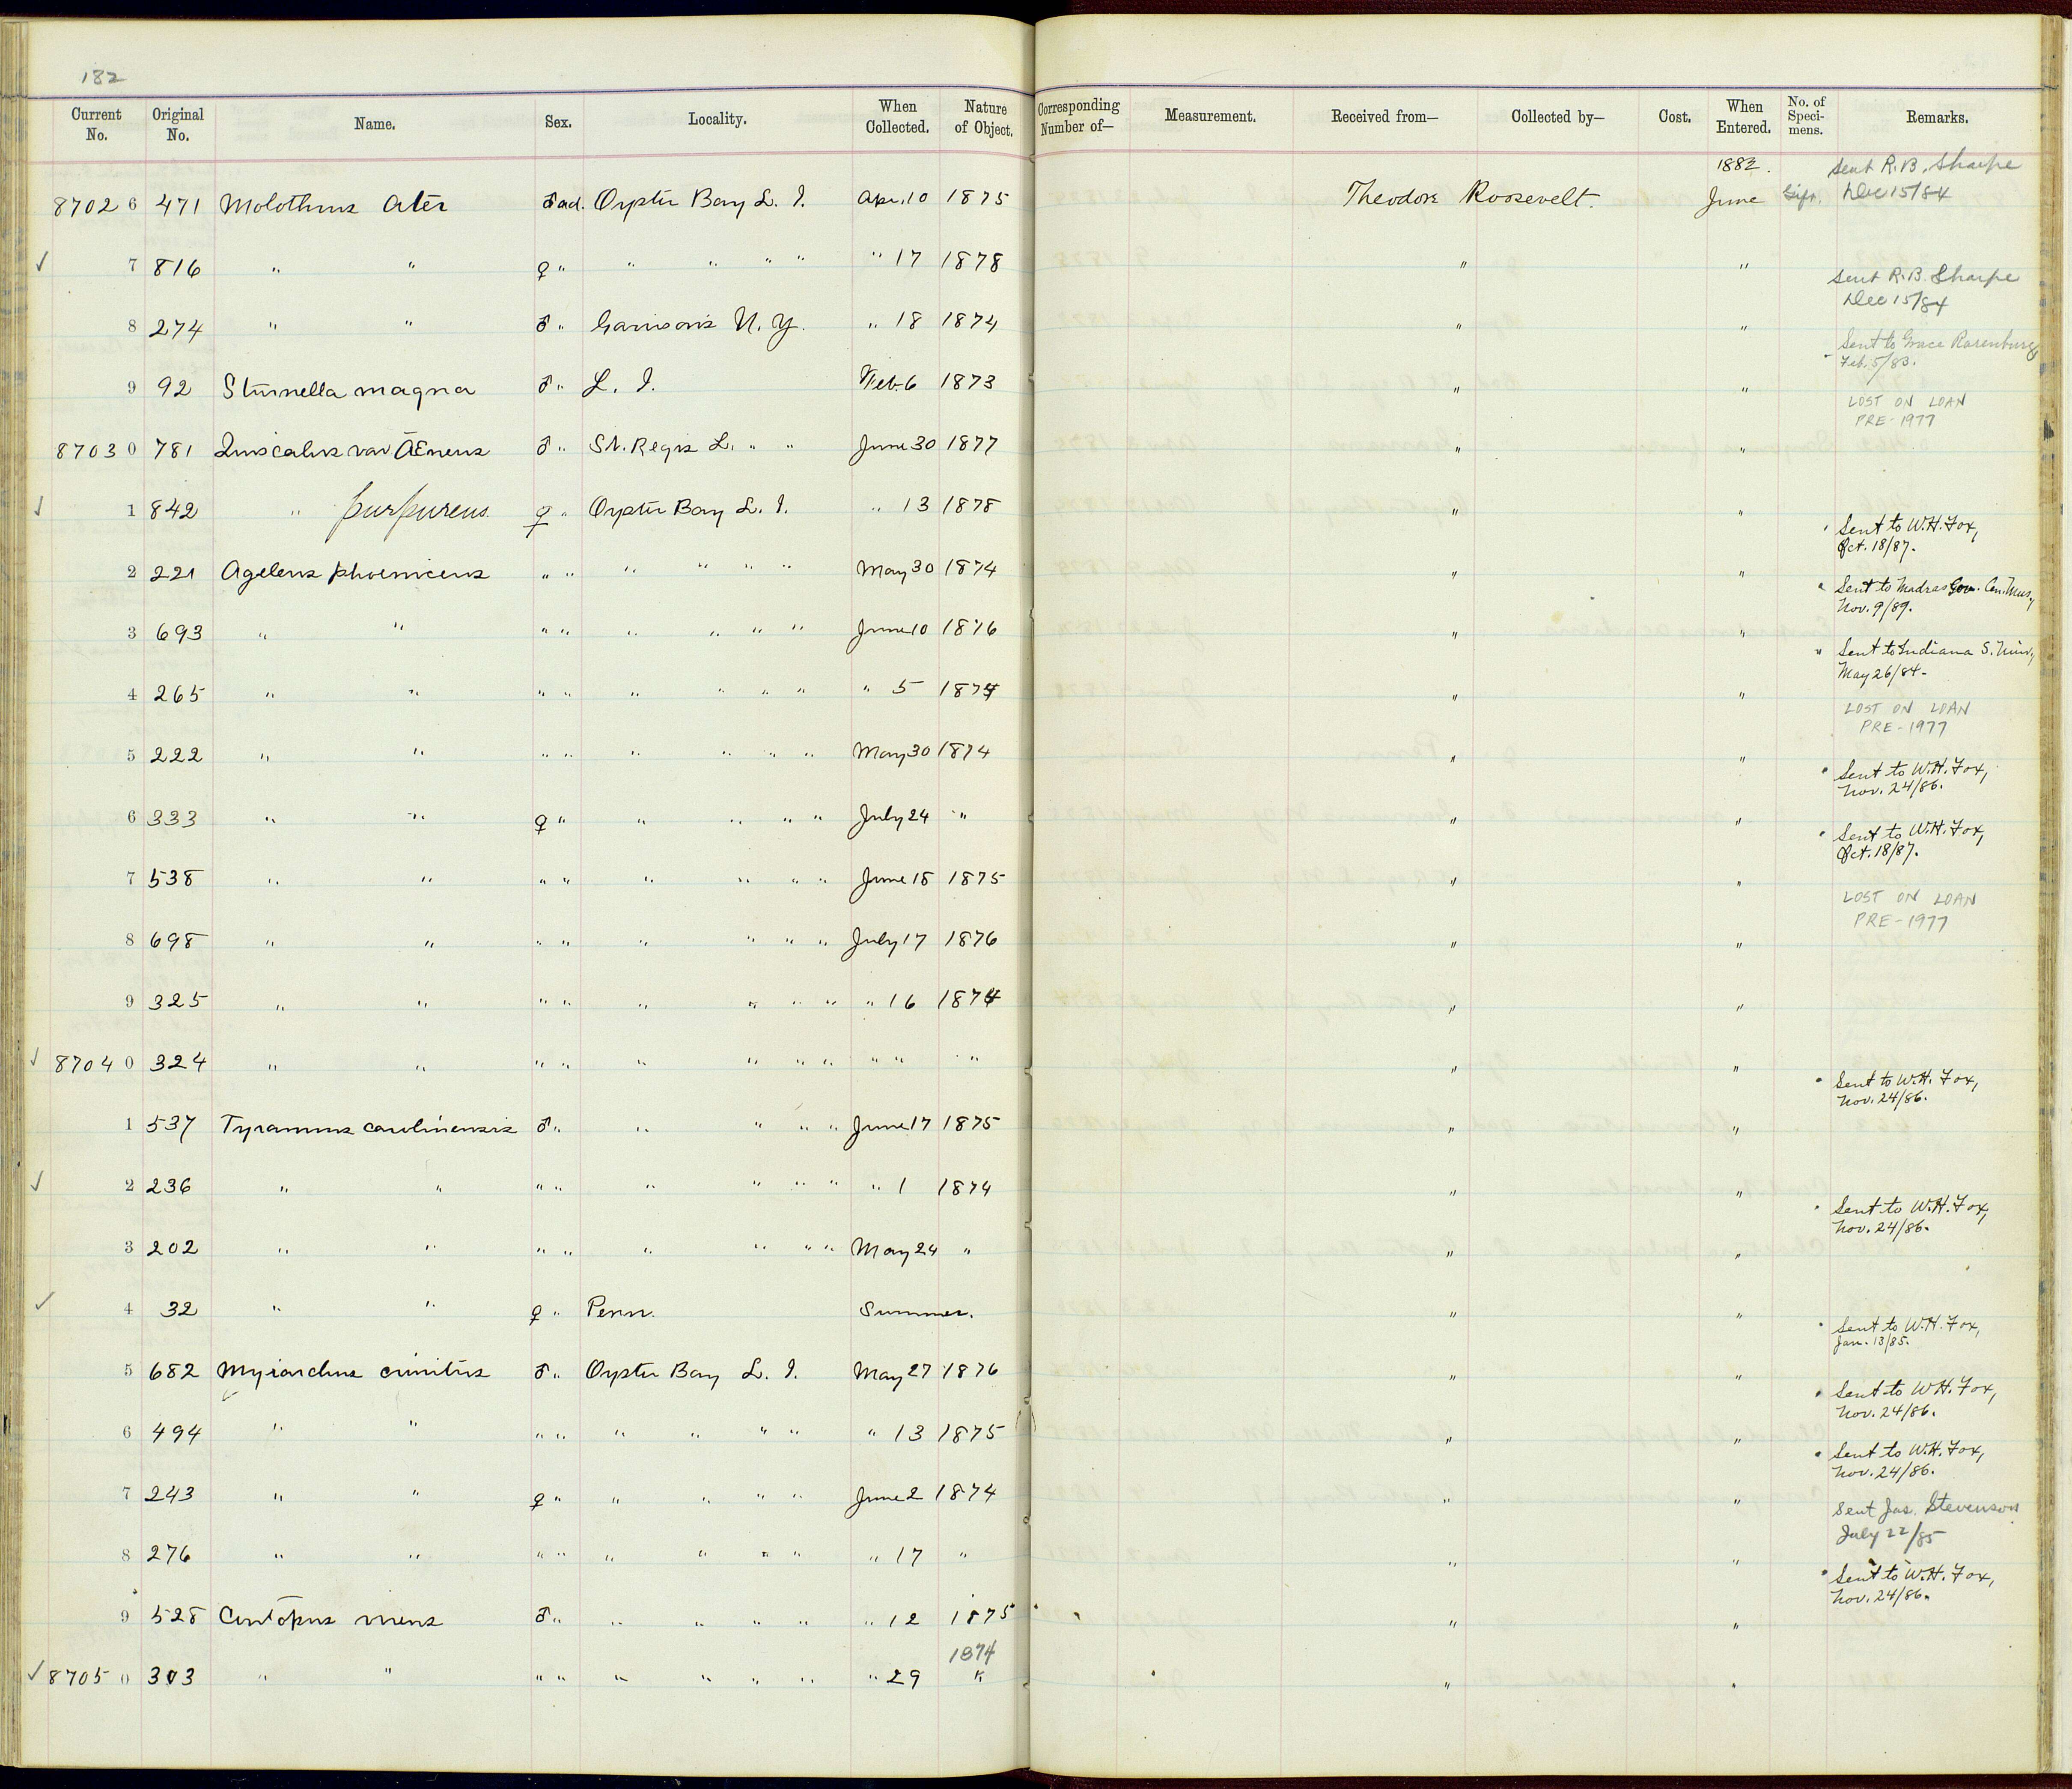 182
Current No. Original No. Name. Sex. Locality. When Collected. Nature of Object. Corresponding Number of— Measurement. Received from— Collected by— Cost. When Entered. No. of Specimens. Remarks.
8702 6 471 Molothrus Ater ♂ ad. Oyster Bay L. I. Apr. 10 1875 Theodore Roosevelt. 1882. June Gift. Sent R. B. Sharpe Dec 15/84
✓ 7 816 " " ♀ " " " " " " 17 1878 " "
8 274 " " ♂ " Garrison's N. Y. " 18 1874 " " Sent R. B. Sharpe Dec 15/84
9 92 Sturnella magna ♂ " L. I. Feb. 6 1873 " " Sent to Feb. 5/83.
8703 0 781 Quiscalus var Æneus ♂ " St. Regis L. " " June 30 1877 " " LOST ON LOAN PRE-1977
✓ 1 842 " purpureus. ♀ " Oyster Bay L. I. " 13 1878 " "
2 221 Ageleus phoeniceus " " " " " " May 30 1874 " " Sent to W.H. Fox, Oct. 18/87.
3 693 " " " " " " " " June 10 1876 " " Sent to Madras Gov. Cen. Mus, Nov. 9/89.
4 265 " " " " " " " " " 5 1874 " " Sent to Indiana S. Univ, May 26/84.
5 222 " " " " " " " " May 30 1874 " " LOST ON LOAN PRE-1977
6 333 " " ♀ " " " " " July 24 " " " Sent to W.H. Fox, Nov. 24/86.
7 538 " " " " " " " " June 18 1875 " " Sent to W.H. Fox, Oct. 18/87.
8 698 " " " " " " " " July 17 1876 " " LOST ON LOAN PRE-1977
9 325 " " " " " " " " " 16 1874 " "
✓ 8704 0 324 " " " " " " " " " " " " "
1 537 Tyrannus carolinensis ♂ " " " " " June 17 1875 " " Sent to W.H. Fox, Nov. 24/86.
✓ 2 236 " " " " " " " " " 1 1874 " "
3 202 " " " " " " " " May 24 " " " Sent to W.H. Fox, Nov. 24/86.
✓ 4 32 " " ♀ " Penn. Summer. " "
5 682 Myiarchus crinitus ♂ " Oyster Bay L. I. May 27 1876 " " Sent to W.H. Fox, Jan. 13/85.
6 494 " " " " " " " " " 13 1875 " " Sent to W.H. Fox, Nov. 24/86.
7 243 " " ♀ " " " " " June 2 1874 " " Sent to W.H. Fox, Nov. 24/86.
8 276 " " " " " " " " " 17 " " " Sent Jas. Stevenson July 22/85
9 528 Contopus virens ♂ " " " " " " 12 1875 " " Sent to W.H. Fox, Nov. 24/86.
✓ 8705 0 303 " " " " " " " " " 29 1874 " "